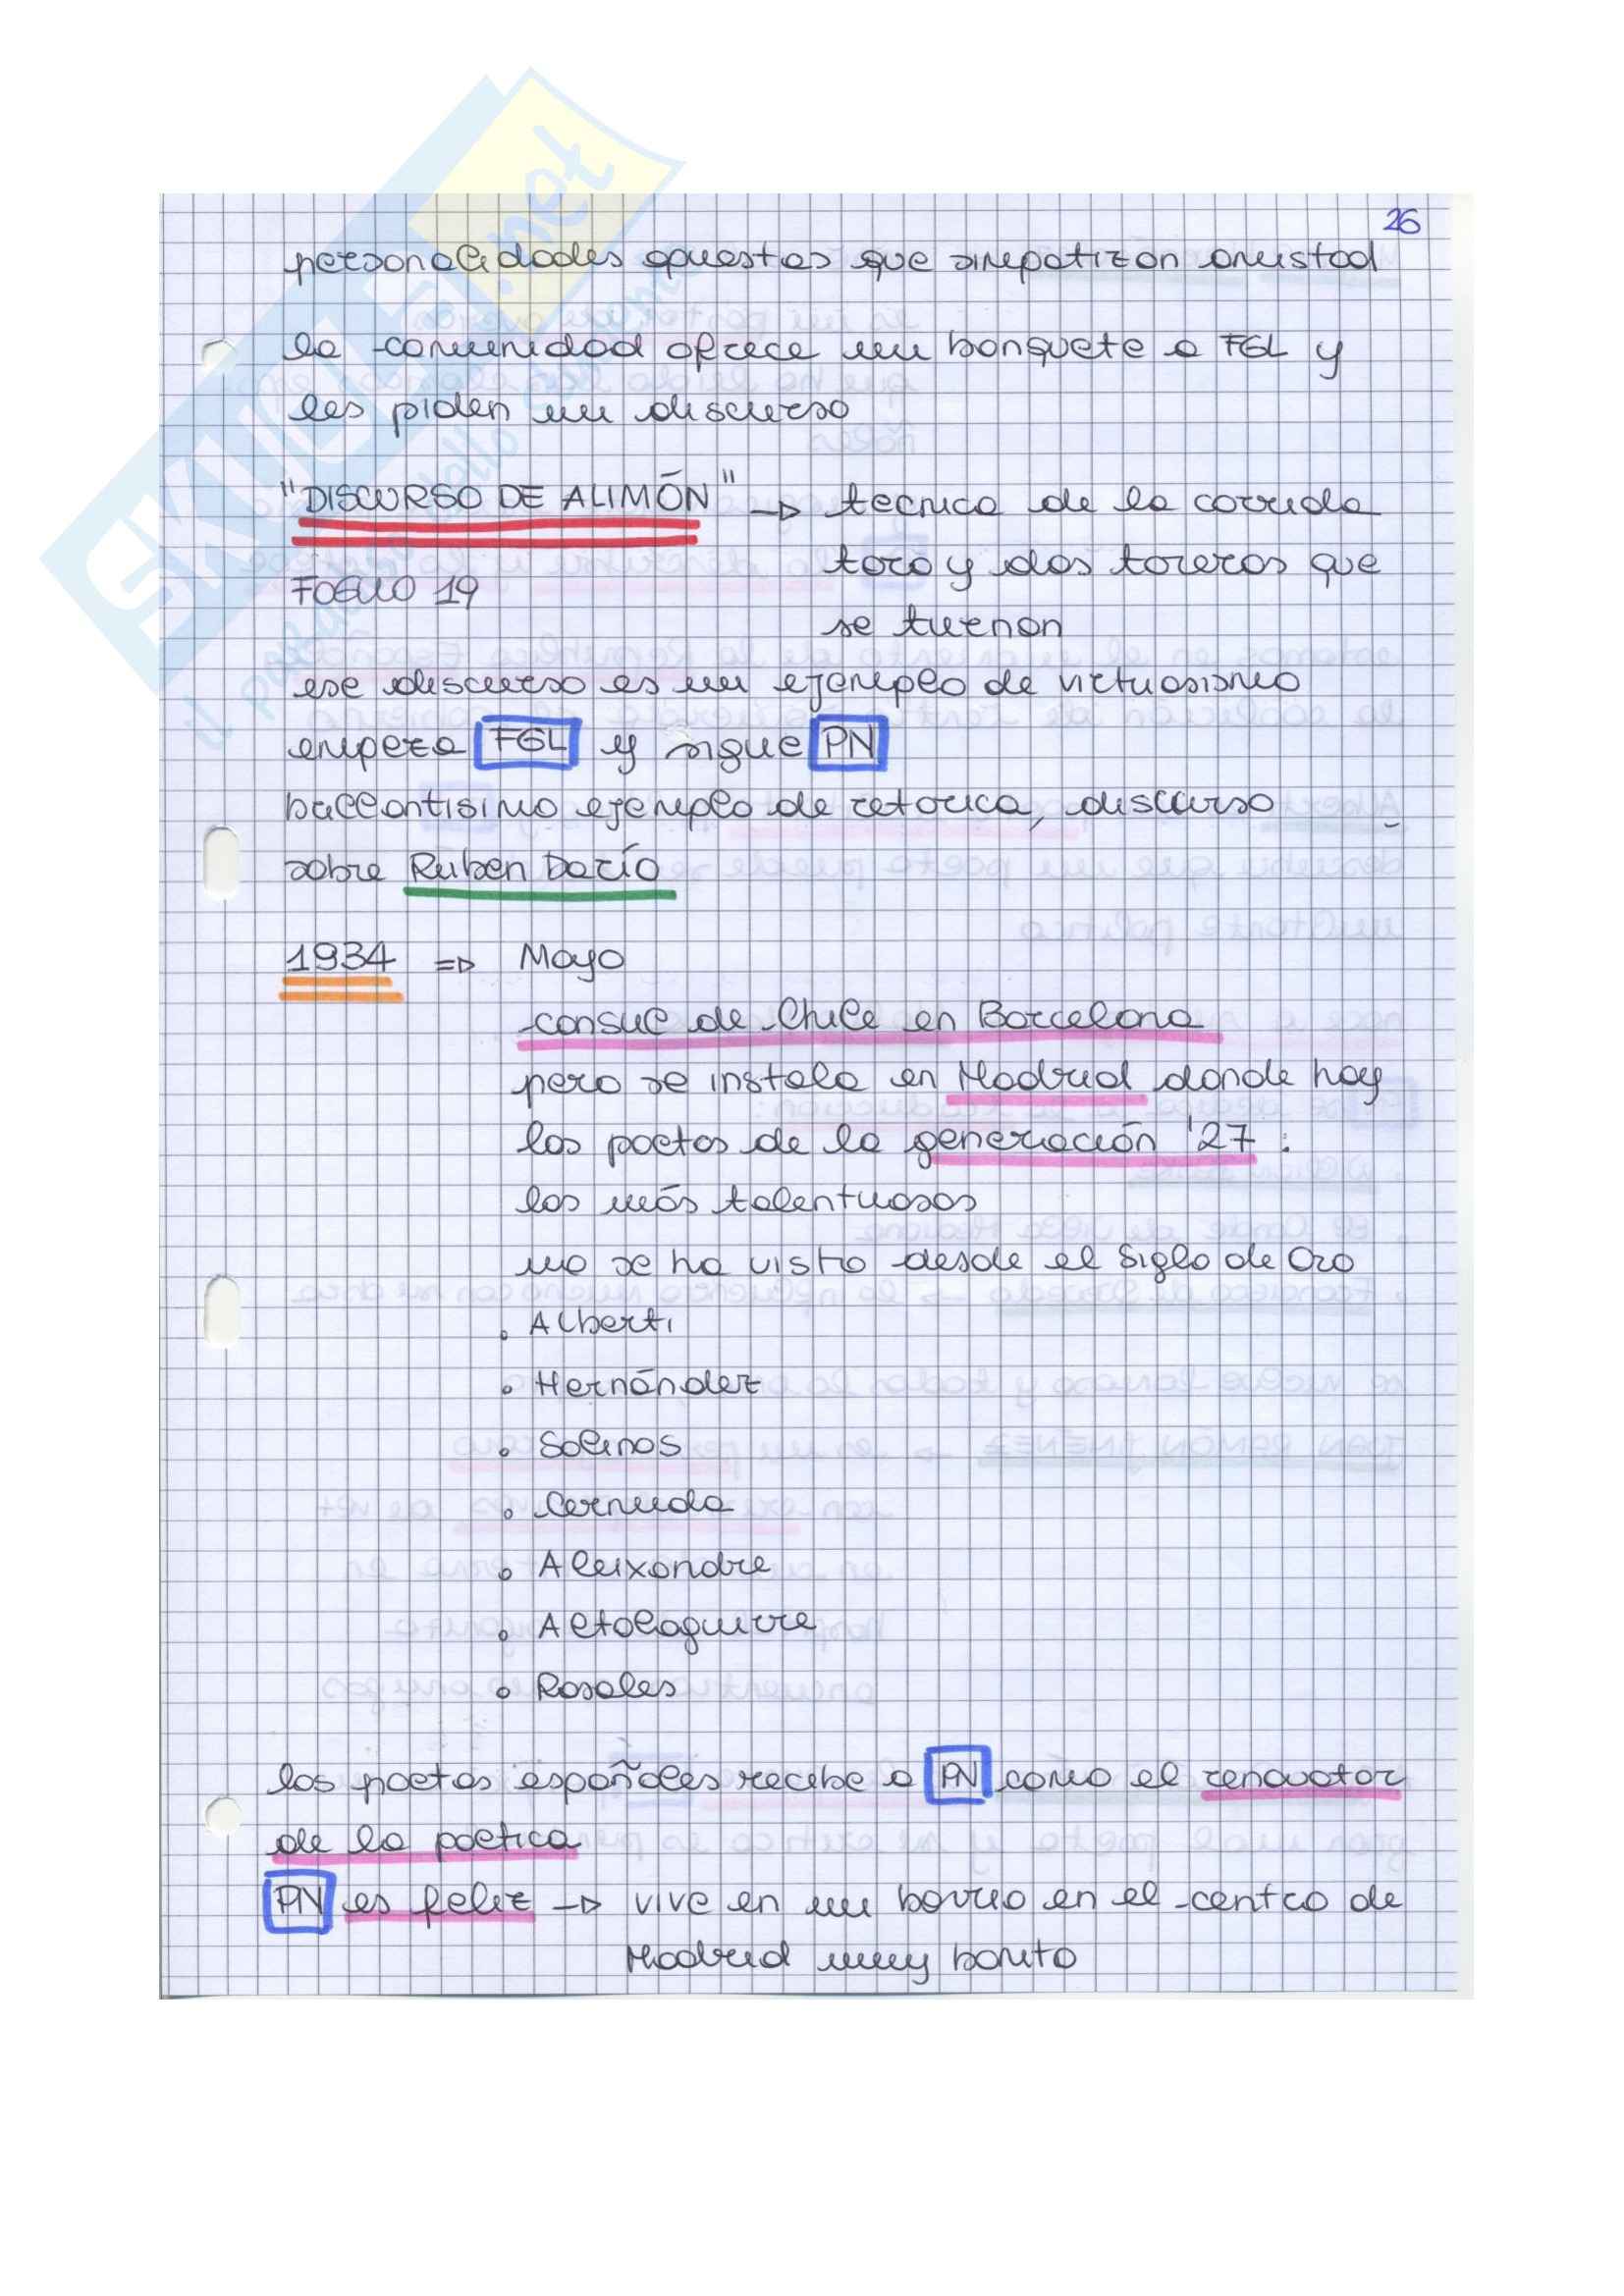 26
personalidades opuestas que simpatizan amistad
la comunidad ofrece un banquete a FGL y
les piden un discurso
"DISCURSO DE ALIMÓN" → tecnica de la corrida
toro y dos toreros que
FOGLIO 19
se turnan
ese discurso es un ejemplo de virtuosismo
empeza FGL y sigue PN
brillantisimo ejemplo de retorica, discurso
sobre Ruben Darío
1934 ⇒ Mayo
consul de Chile en Barcelona
pero se instala en Madrid donde hay
los poetas de la generación '27:
los más talentuosos
no se ha visto desde el Siglo de Oro
• Alberti
• Hernández
• Salinas
• Cernuda
• Aleixandre
• Altolaguirre
• Rosales
los poetas españoles recibe a PN como el renovator
de la poetica
PN es feliz → vive en un barrio en el centro de
Madrid muy bonito
SKUOLA.net